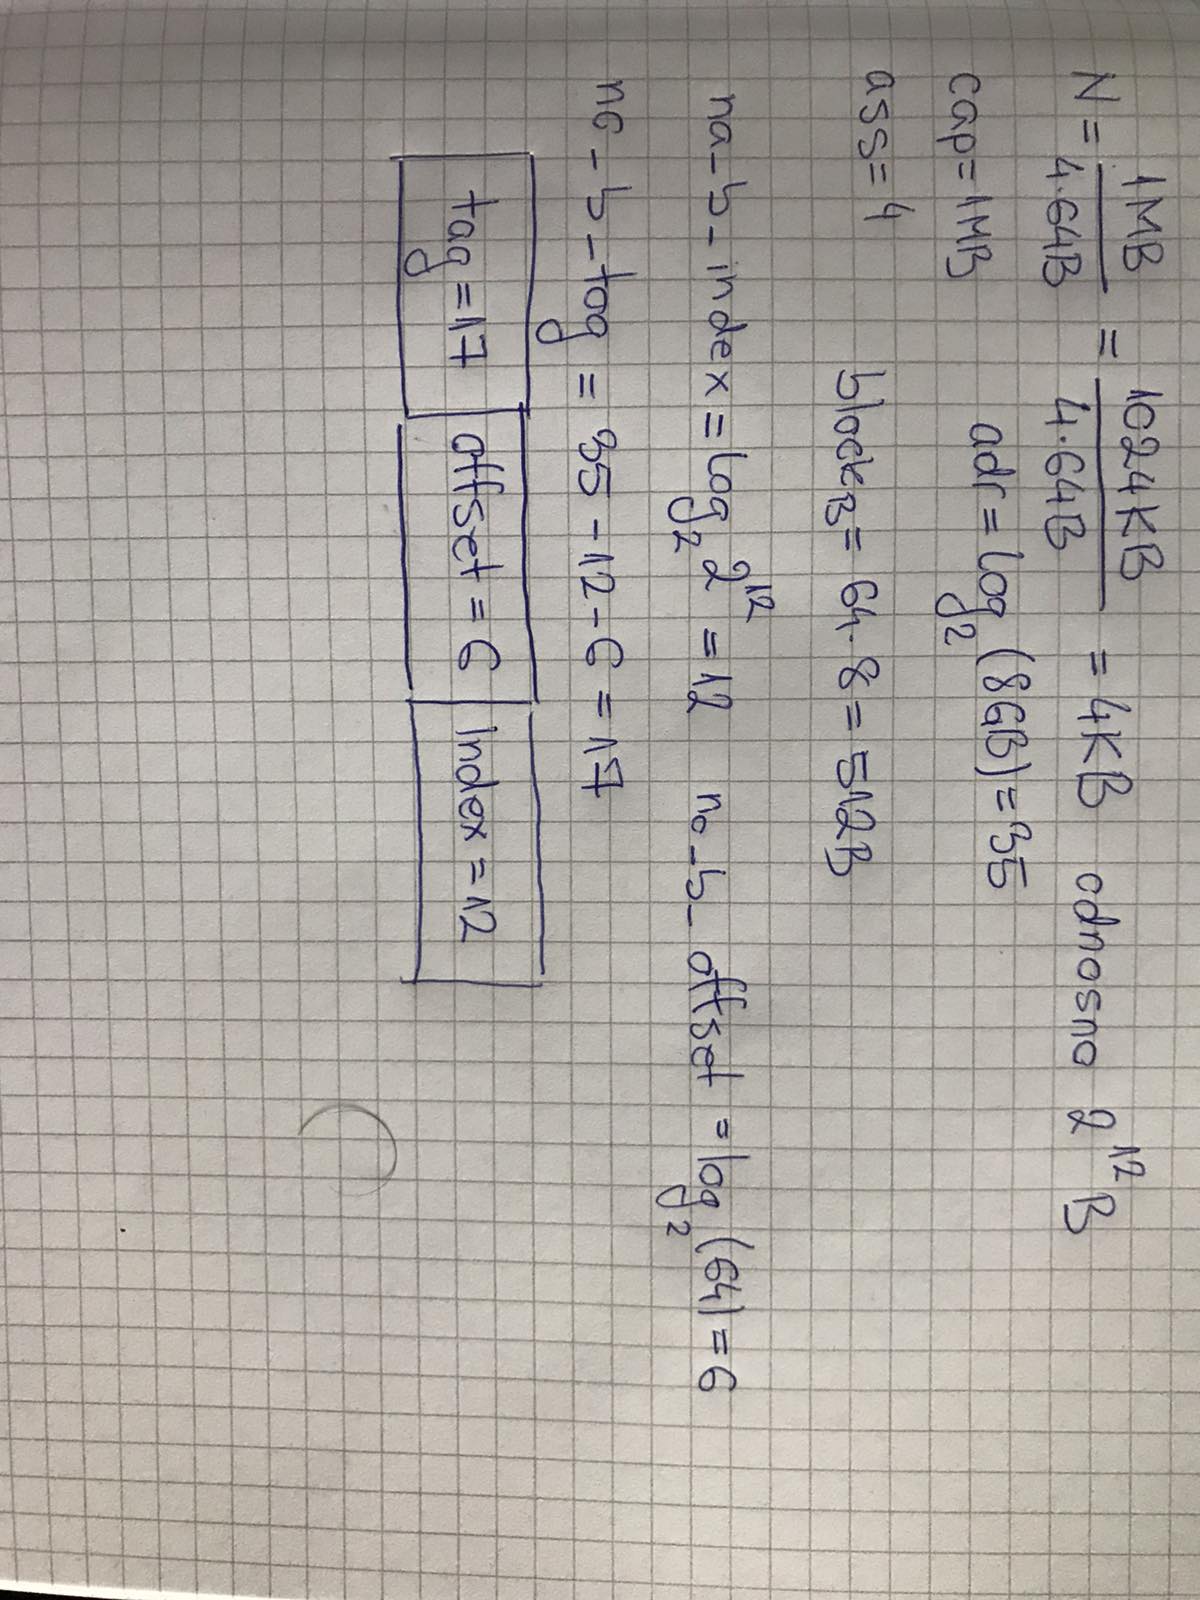 N = 1MB / 4·64B = 1024KB / 4·64B = 4KB odnosno 2^12 B
cap = 1MB adr = log2 (8GB) = 35
ass = 4 blockB = 64·8 = 512B
na-b-index = log2 2^12 = 12 no-b-offset = log2 (64) = 6
no-b-tag = 35 - 12 - 6 = 17
tag = 17 offset = 6 Index = 12